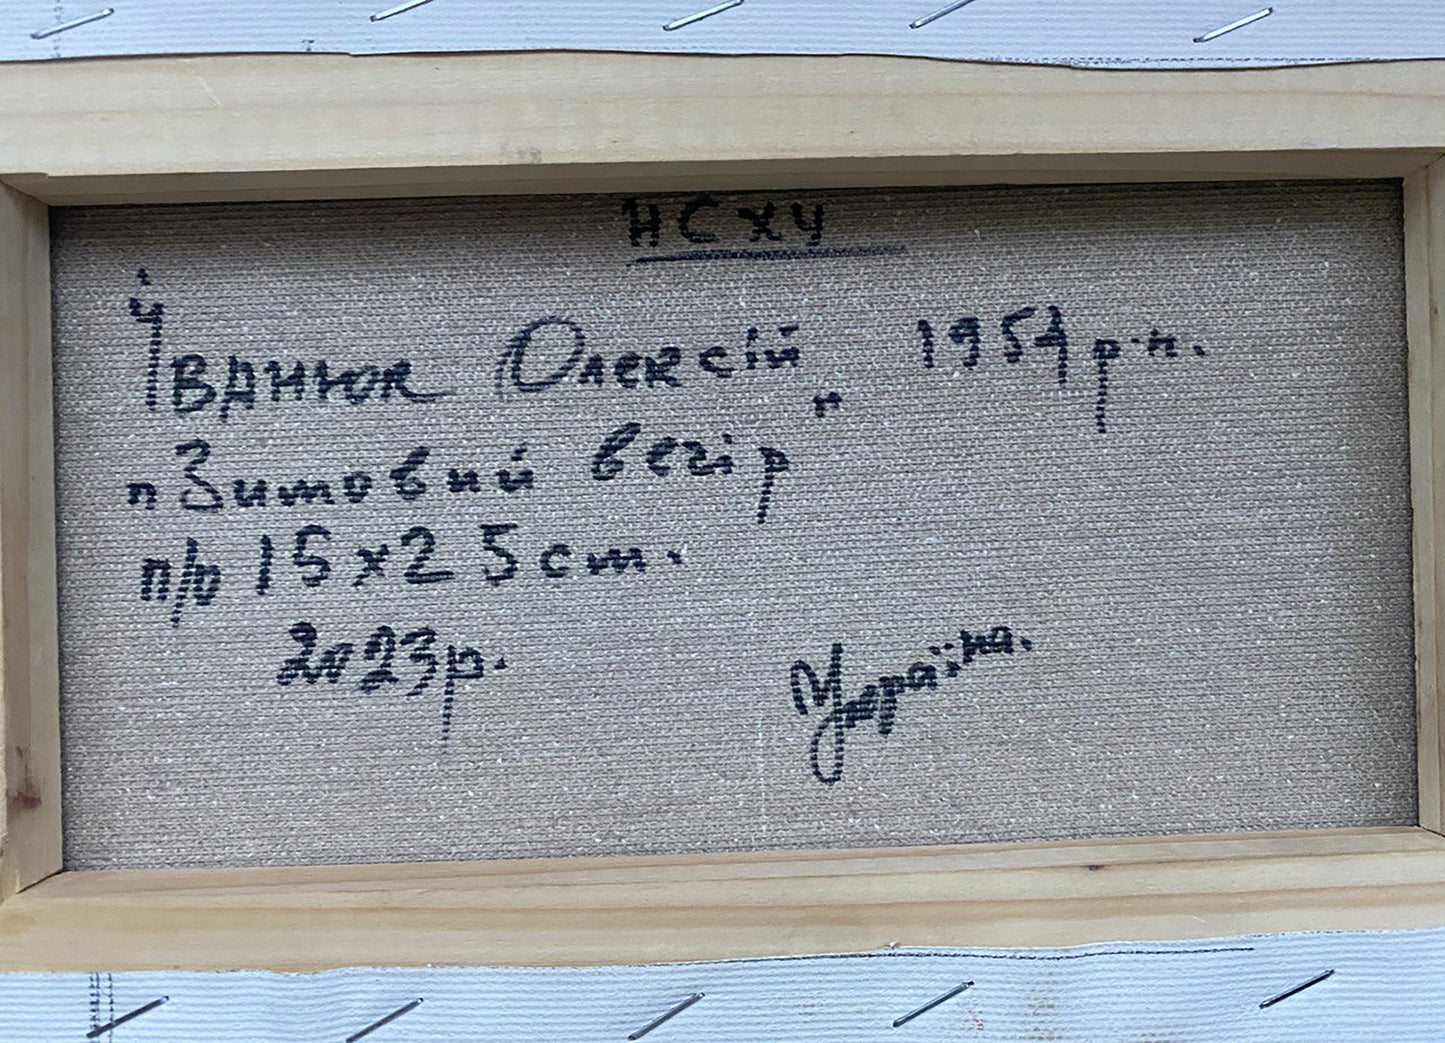 НСХУ
Іванюк Олексій 1954 р.н.
"Зимовий вечір"
п/о 15x25 см.
2023р.
Україна.